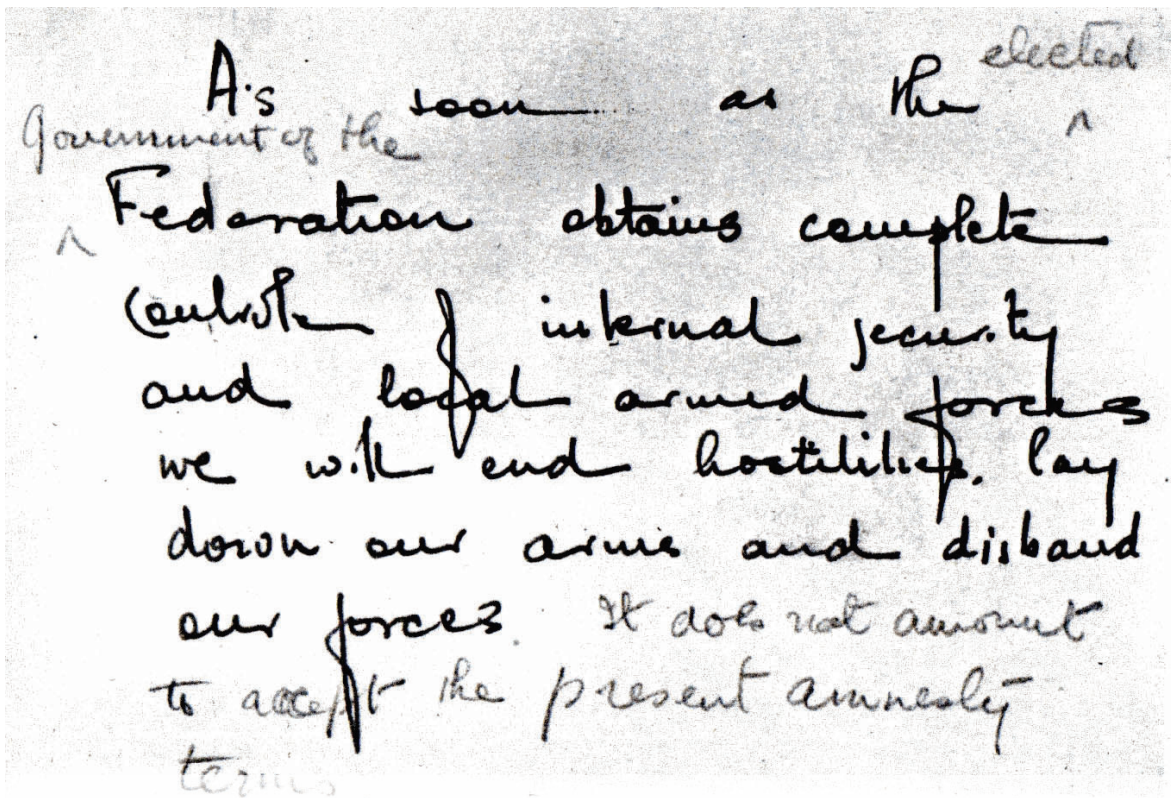 elected
As soon as the ^
Government of the
^ Federation obtains complete
control of internal security
and local armed forces
we will end hostilities. lay
down our arms and disband
our forces. It does not amount
to accept the present amnesty
terms